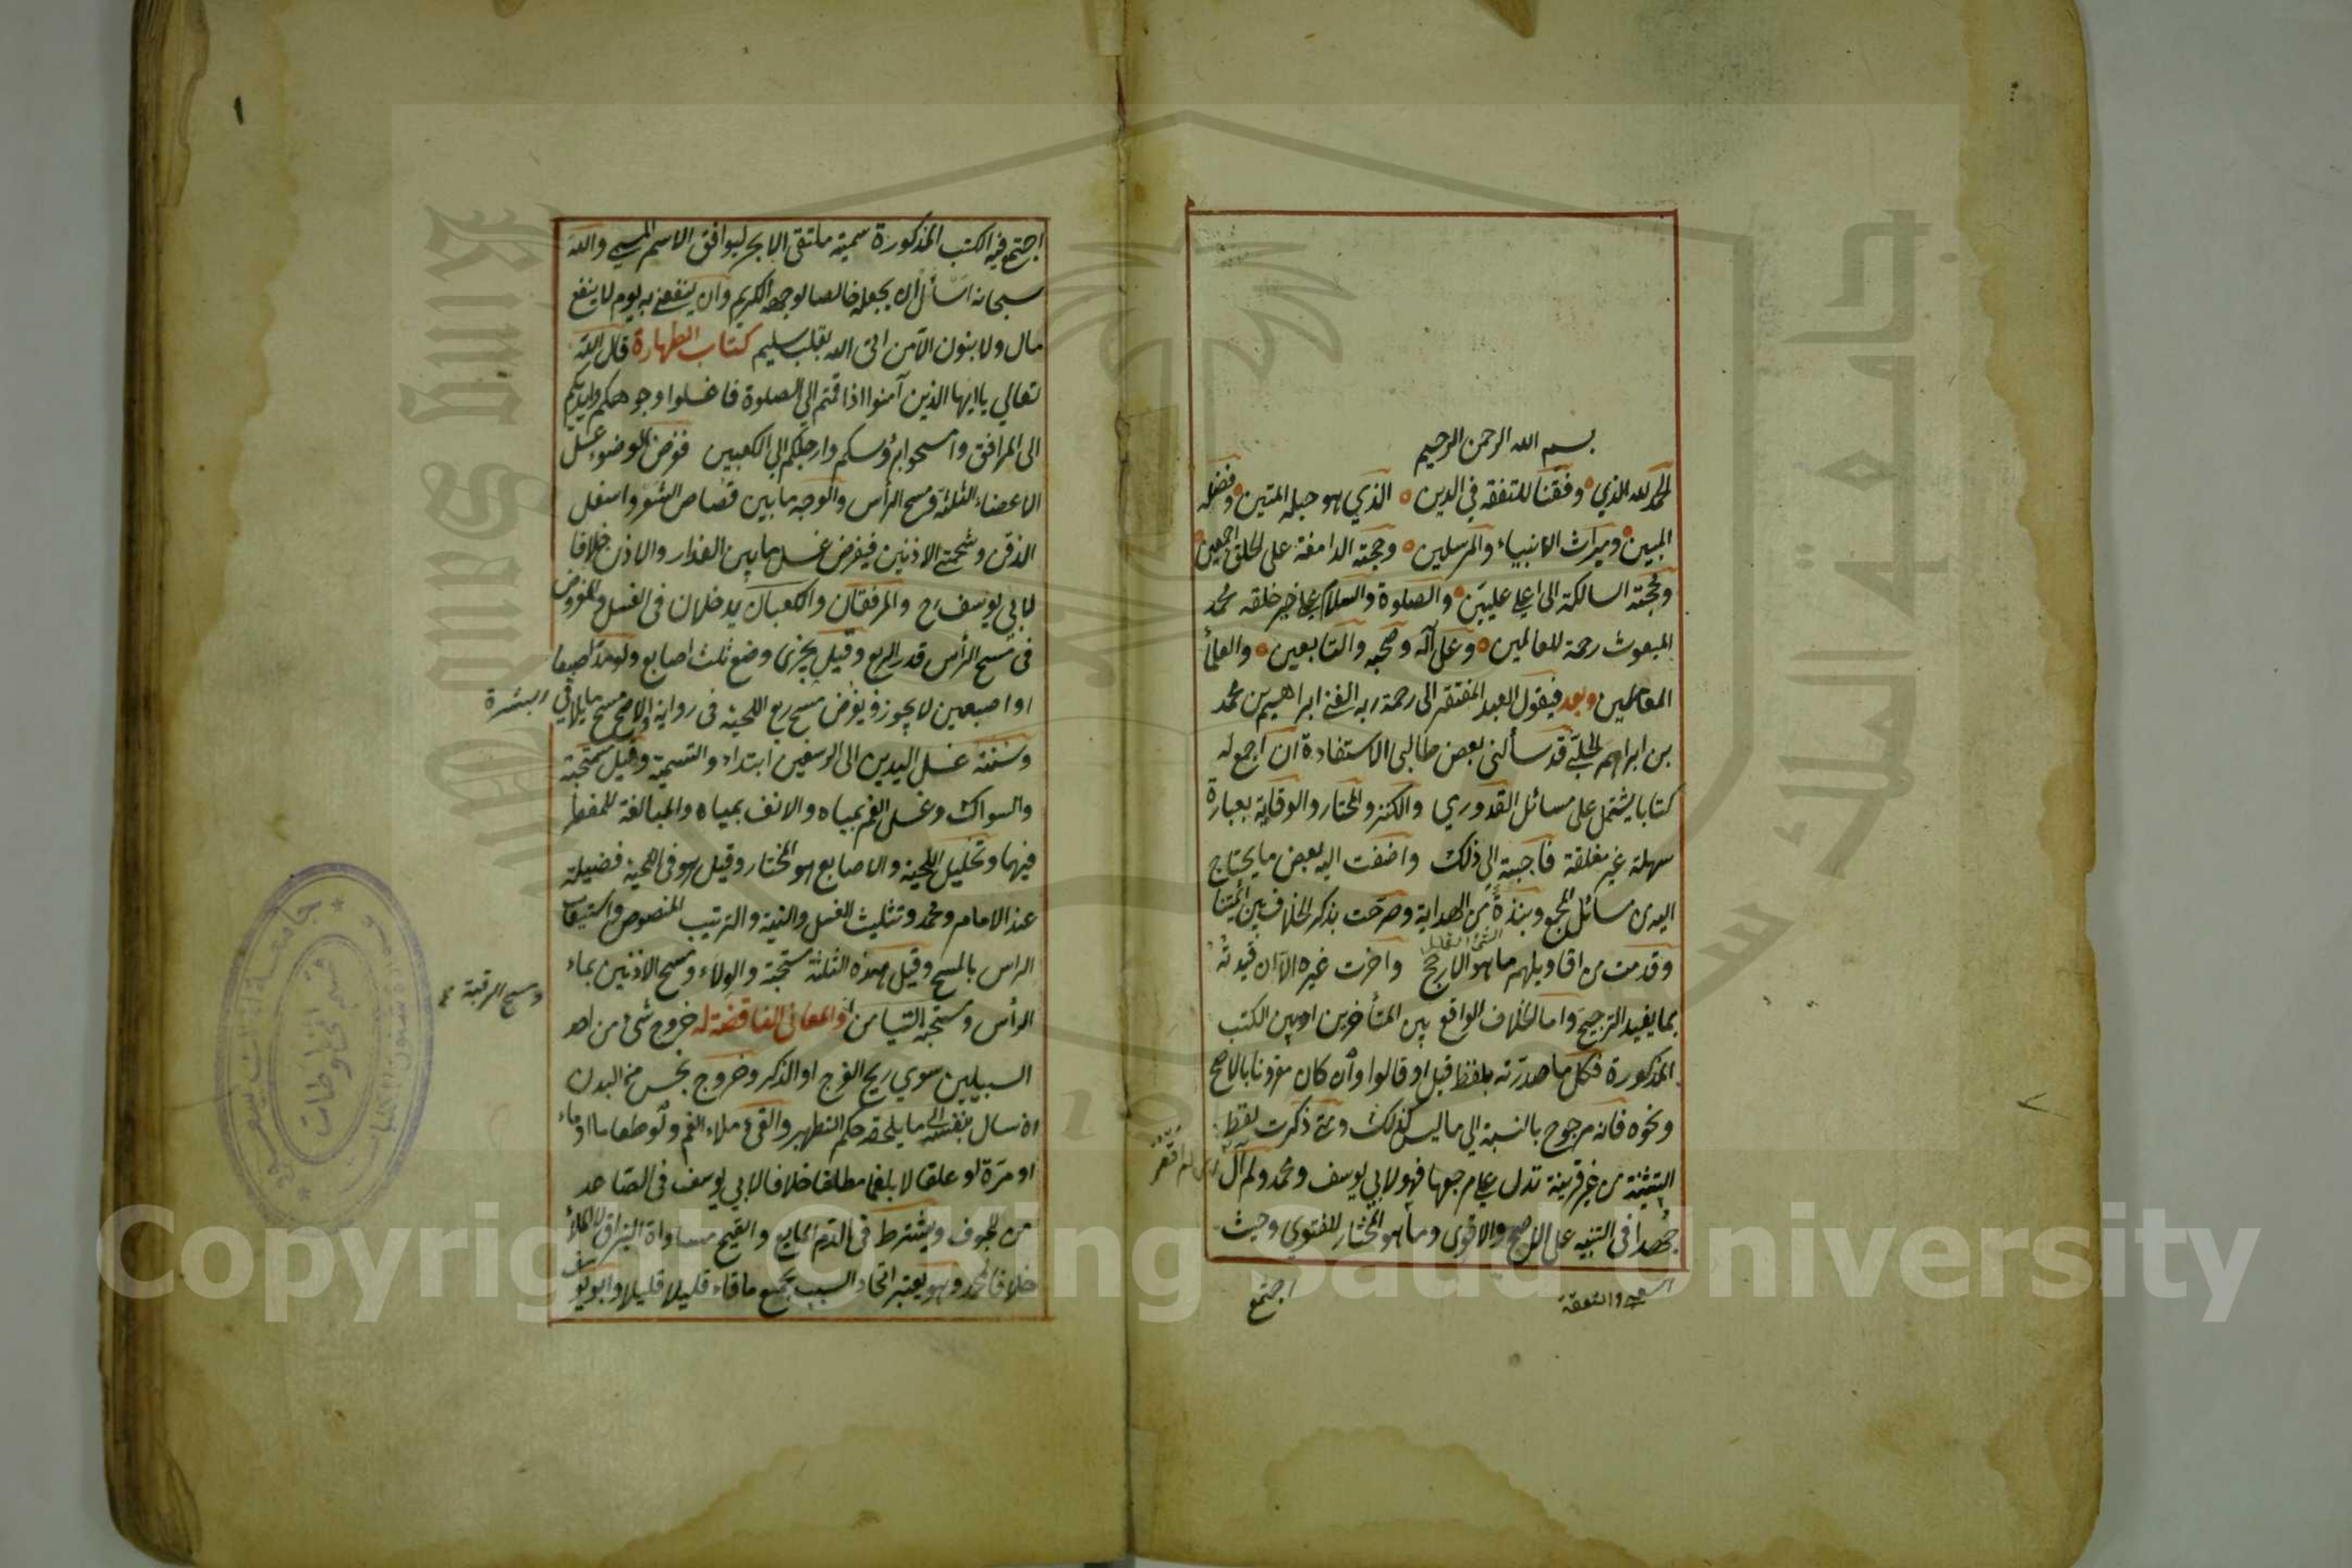 بسم الله الرحمن الرحيم
الحمد لله الذي وفقنا للتفقه في الدين الذي هو حبله المتين وفضله
المبين وميراث الانبياء والمرسلين وحجته الدامغة على الخلق اجمعين
ومحجته السالكة الى اعلى عليين والصلوة والسلام على خير خلقه محمد
المبعوث رحمة للعالمين وعلى آله وصحبه والتابعين والعلماء
العاملين وبعد فيقول العبد المفتقر الى رحمة ربه الغني ابراهيم بن محمد
بن ابراهيم الحلبي قد سألني بعض طالبي الاستفادة ان اجمع له
كتابا يشتمل على مسائل القدوري والكنز والمختار والوقاية بعبارة
سهلة غير مغلقة فاجبته الى ذلك واضفت اليه بعض ما يحتاج
اليه من مسائل المجمع ونبذة من الهداية وصرحت بذكر الخلاف بين ائمتنا
الشئ القليل
وقدمت من اقاويلهم ما هو الارجح واخرت غيره الا ان قيدته
بما يفيد الترجيح واما الخلاف الواقع بين المتأخرين او بين الكتب
المذكورة فكل ما صدرته بلفظ قيل او قالوا وان كان مقرونا بالاصح
ونحوه فانه مرجوح بالنسبة الى ما ليس كذلك ومتى ذكرت لفظ
التثنية من غير قرينة تدل على مرجعها فهو لابي يوسف ومحمد ولم آل
جهدا في التنبيه على الاصح والاقوى وما هو المختار للفتوى وحيث
اجتمع
اجتمع فيه الكتب المذكورة سميته ملتقى الابحر ليوافق الاسم المسمى والله
سبحانه اسأل ان يجعله خالصا لوجهه الكريم وان ينفعني به يوم لا ينفع
مال ولا بنون الا من اتى الله بقلب سليم كتاب الطهارة قال الله
تعالى يا ايها الذين آمنوا اذا قمتم الى الصلوة فاغسلوا وجوهكم وايديكم
الى المرافق وامسحوا برؤسكم وارجلكم الى الكعبين ففرض الوضوء غسل
الاعضاء الثلثة ومسح الرأس والوجه ما بين قصاص الشعر واسفل
الذقن وشحمتي الاذنين فيفرض غسل ما بين العذار والاذن خلافا
لابي يوسف رح والمرفقان والكعبان يدخلان في الغسل والمفروض
في مسح الرأس قدر الربع وقيل يجزئ وضع ثلث اصابع ولو مد اصبعا
او اصبعين لا يجوز ويفرض مسح ربع اللحية في رواية والاصح مسح ما يلاقي البشرة
وسنته غسل اليدين الى الرسغين ابتداء والتسمية وقيل مستحبة
والسواك وغسل الفم بمياه والانف بمياه والمبالغة للمفطر
فيهما وتخليل اللحية والاصابع هو المختار وقيل هو في اللحية فضيلة
عند الامام ومحمد وتثليث الغسل والنية والترتيب المنصوص واستيعاب
الرأس بالمسح وقيل هذه الثلثة مستحبة والولاء ومسح الاذنين بماء
الرأس ومستحبه التيامن والمعاني الناقضة له خروج شئ من احد
ومسح الرقبة
السبيلين سوى ريح الفرج او الذكر وخروج نجس من البدن
ان سال بنفسه الى ما يلحقه حكم التطهير والقئ ملاء الفم ولو طعاما او ماء
او مرة او علقا لا بلغما مطلقا خلافا لابي يوسف في الصاعد
من الجوف ويشترط في الدم المايع والقيح مساواة البزاق لا الملأ
خلافا لمحمد وهو يعتبر اتحاد السبب لجمع ما قاء قليلا قليلا وابو يوسف
Copyright © King Saud University